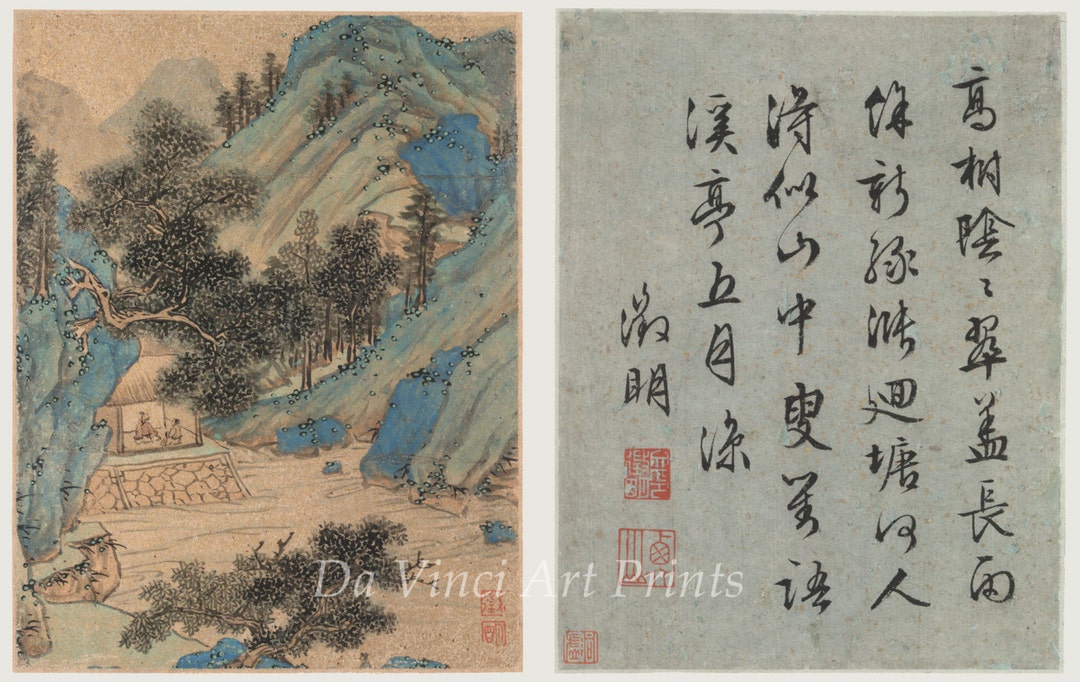 高樹陰〻翠盖長雨
餘新綠漲迴塘何人
得似山中叟對語
溪亭五月涼
徵明
Da Vinci Art Prints